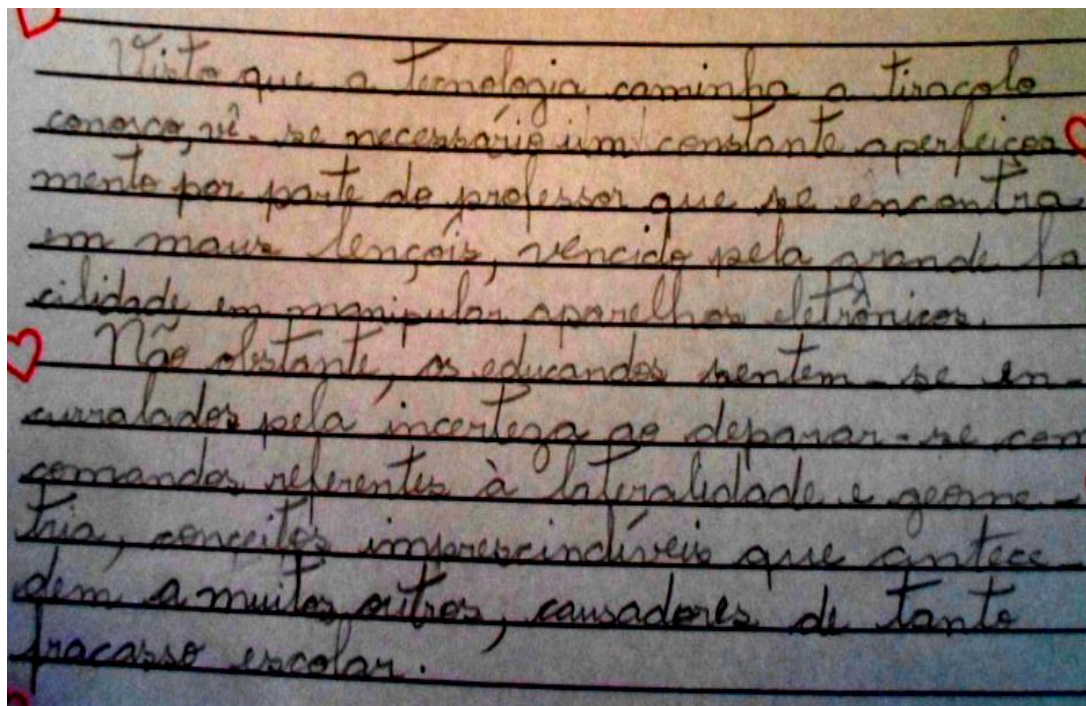 Visto que a tecnologia caminha a tiracolo
conosco, vê-se necessário um constante aperfeiçoa
mento por parte do professor que se encontra
em maus lençóis, vencido pela grande fa
cilidade em manipular aparelhos eletrônicos.
Não obstante, os educandos sentem-se en-
curralados pela incerteza ao deparar-se com
comandos referentes à lateralidade e geome-
tria, conceitos imprescindíveis que antece-
dem a muitos outros, causadores de tanto
fracasso escolar.